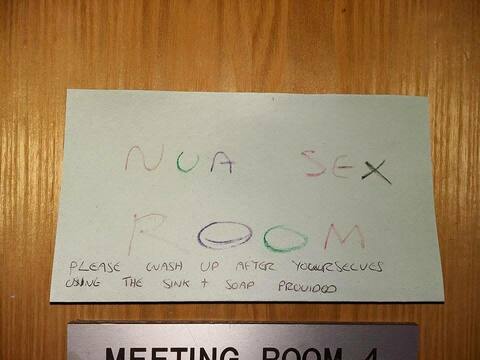 NUA SEX
ROOM
PLEASE WASH UP AFTER YOURSELVES
USING THE SINK + SOAP PROVIDED
MEETING ROOM 4